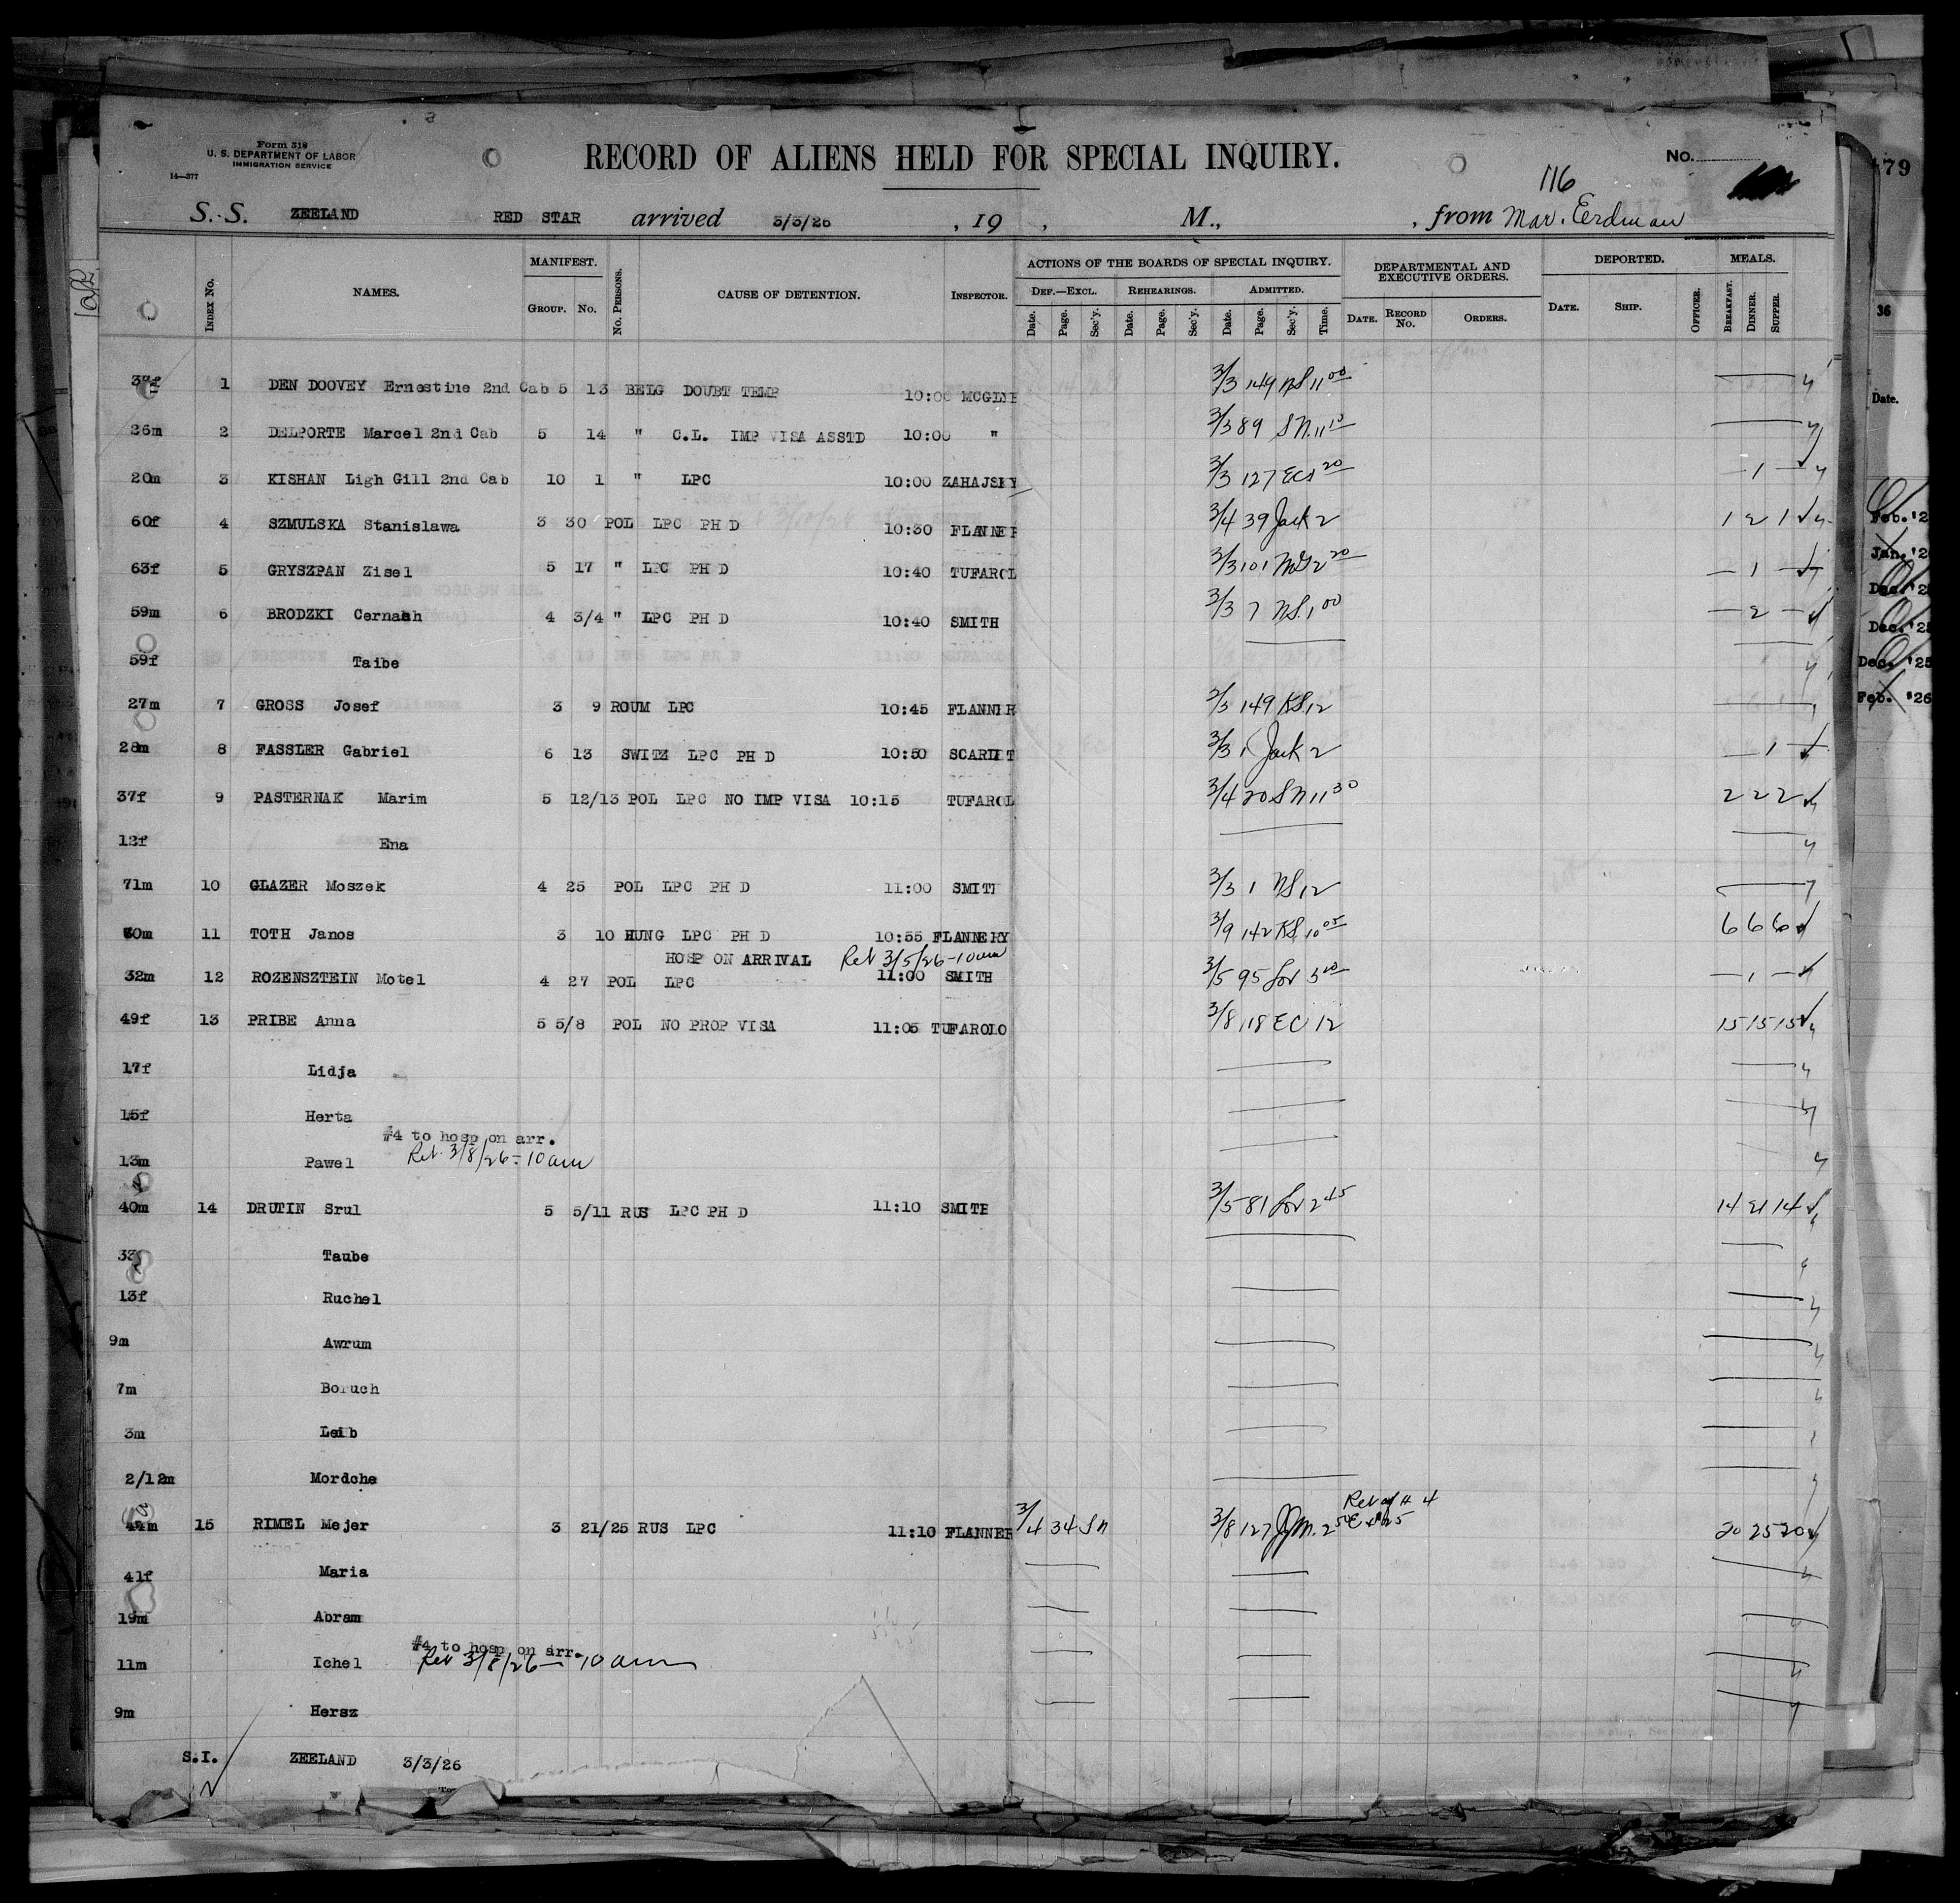 Form 318
U. S. DEPARTMENT OF LABOR
IMMIGRATION SERVICE
14—377
RECORD OF ALIENS HELD FOR SPECIAL INQUIRY.
No.
116
79
S. S. ZEELAND RED STAR arrived 3/3/26 , 19 , M., , from Mar. Erdman
INDEX No. NAMES. MANIFEST. GROUP. No. No. PERSONS. CAUSE OF DETENTION. INSPECTOR. ACTIONS OF THE BOARDS OF SPECIAL INQUIRY. DEF.—EXCL. Date. Page. Sec'y. REHEARINGS. Date. Page. Sec'y. ADMITTED. Date. Page. Sec'y. Time. DEPARTMENTAL AND EXECUTIVE ORDERS. DATE. RECORD No. ORDERS. DEPORTED. DATE. SHIP. OFFICER. MEALS. BREAKFAST. DINNER. SUPPER.
36
Date.
37f 1 DEN DOOVEY Ernestine 2nd Cab 5 13 BELG DOUBT TEMP 10:00 3/3 149 NS 11 00
26m 2 DELPORTE Marcel 2nd Cab 5 14 " C.L. IMP VISA ASSTD 10:00 " 3/3 89 SN 11 10
20m 3 KISHAN Ligh Gill 2nd Cab 10 1 " LPC 10:00 ZAHAJSKY 3/3 127 — 1 —
60f 4 SZMULSKA Stanislawa 3 30 POL LPC PH D 10:30 FLANNER 3/4 39 Jack 2 1 2 1
63f 5 GRYSZPAN Zisel 5 17 " LPC PH D 10:40 TUFAROL 3/3 101 — 1 —
59m 6 BRODZKI Cernash 4 3/4 " LPC PH D 10:40 SMITH 3/3 7 NS 1 00 — 2 —
59f Taibe
27m 7 GROSS Josef 3 9 ROUM LPC 10:45 FLANNER 3/3 149 KS 12
28m 8 FASSLER Gabriel 6 13 SWITZ LPC PH D 10:50 SCARLET 3/3 1 Jack 2 — 1 —
37f 9 PASTERNAK Marim 5 12/13 POL LPC NO IMP VISA 10:15 TUFAROL 3/4 20 SN 11 30 2 2 2
12f Ena
71m 10 GLAZER Moszek 4 25 POL LPC PH D 11:00 SMITH 3/3 1 NS 12
11 TOTH Janos 3 10 HUNG LPC PH D 10:55 FLANNERY 3/9 142 KS 10 05 6 6 6
HOSP ON ARRIVAL Rel 3/5/26-10am
32m 12 ROZENSZTEIN Motel 4 27 POL LPC 11:00 SMITH 3/5 95 — 1 —
49f 13 PRIBE Anna 5 5/8 POL NO PROP VISA 11:05 TUFAROLO 3/8 118 EC 12 15 15 15
17f Lidja
15f Herta
#4 to hosp on arr.
13m Pawel Rel. 3/8/26 - 10am
40m 14 DRUTIN Srul 5 5/11 RUS LPC PH D 11:10 SMITH 3/5 81 2 45 14 21 14
33 Taube
13f Ruchel
9m Awrum
7m Boruch
3m Leib
2/12m Mordche
Rel of # 4
44m 15 RIMEL Mejer 3 21/25 RUS LPC 11:10 FLANNER 3/4 34 SN 3/8 127 20 25 20
41f Maria
19m Abram
#4 to hosp on arr.
11m Ichel Rel 3/8/26 — 10 am
9m Hersz
S.I. ZEELAND 3/3/26
Feb. '2
Jan. '2
Dec. '2
Dec. '25
Dec. '25
Feb. '26